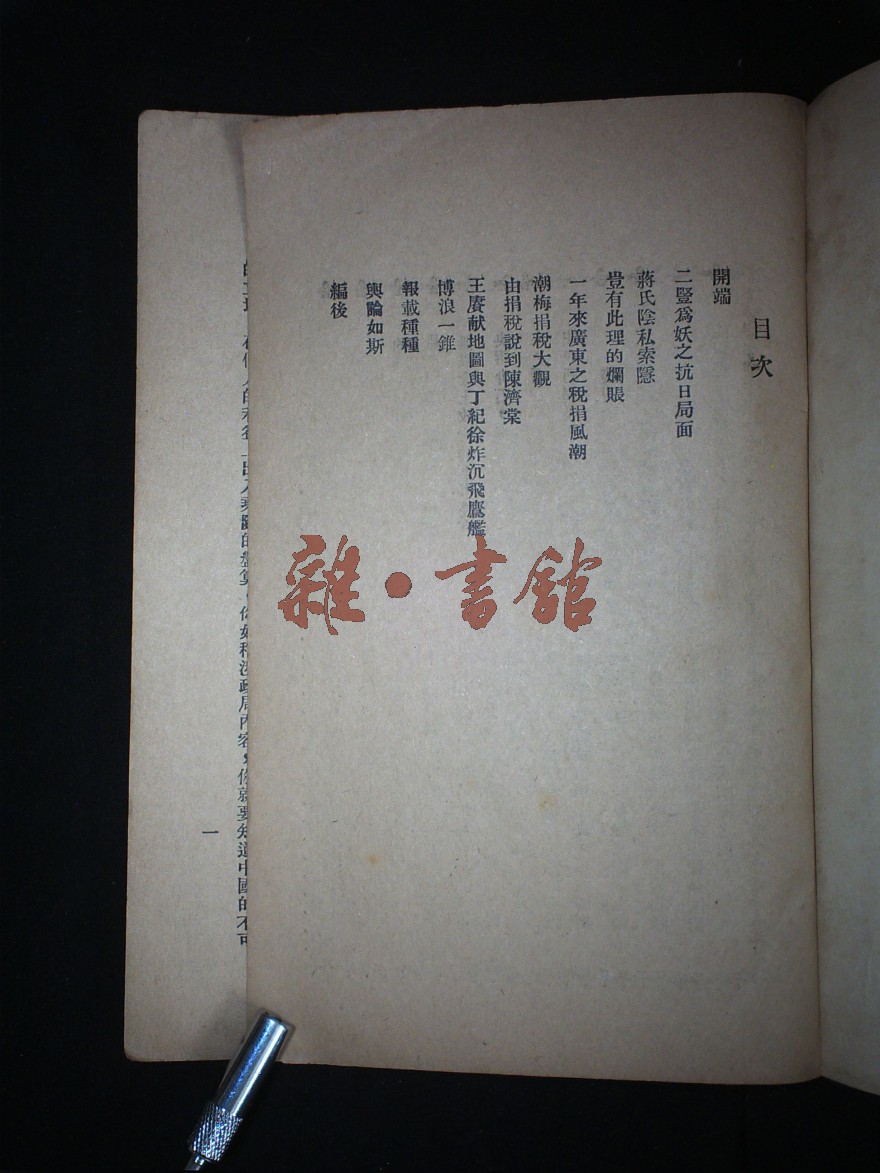 目次
開端
二豎爲妖之抗日局面
蔣氏陰私索隱
豈有此理的爛賬
一年來廣東之稅捐風潮
潮梅捐稅大觀
由捐稅說到陳濟棠
王賡献地圖與丁紀徐炸沉飛鷹艦
博浪一錐
報載種種
輿論如斯
編後
雜·書館
的盤算，你如稱政局內容，你就要知道中國的不可
一